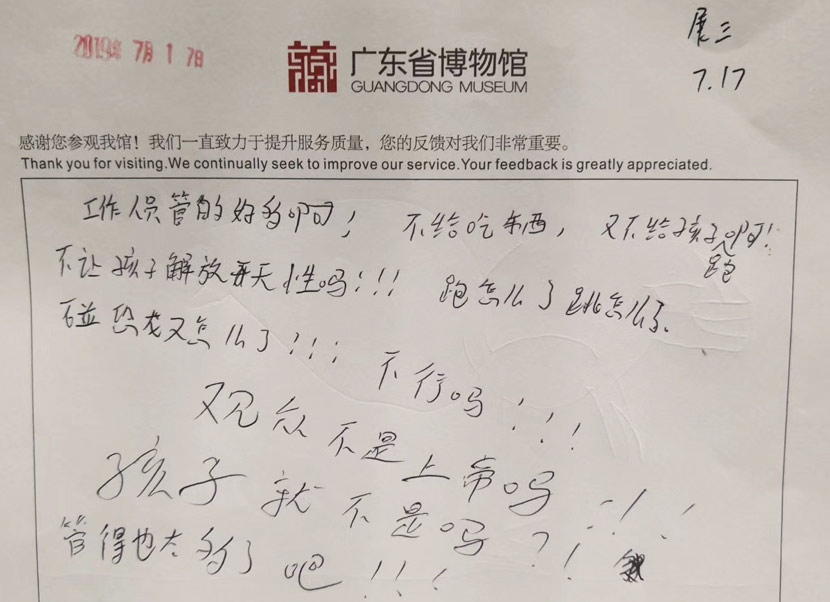 2019年 7月 1 7日
展三
7.17
广东省博物馆
GUANGDONG MUSEUM
感谢您参观我馆！我们一直致力于提升服务质量，您的反馈对我们非常重要。
Thank you for visiting.We continually seek to improve our service.Your feedback is greatly appreciated.
工作人员管的好多啊！不给吃东西，又不给孩子跑啊！
不让孩子解放天性吗！！！跑怎么了跳怎么了
碰恐龙又怎么了！！！不行吗！！！
观众不是上帝吗！！！
孩子就不是吗？！
管得也太多了吧！！！